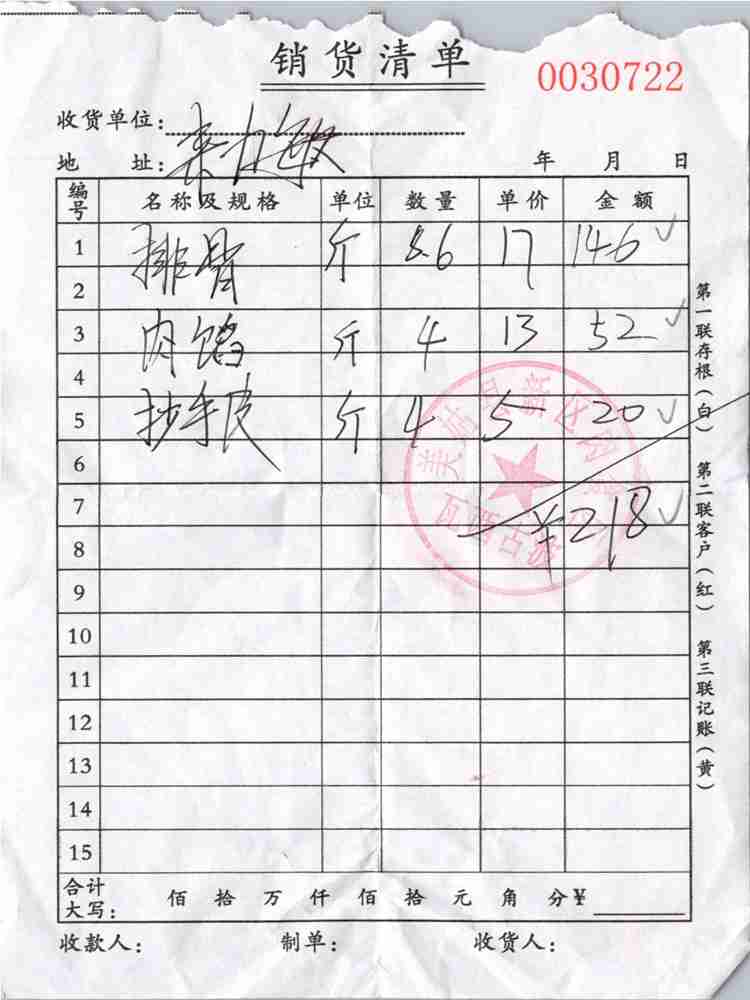 销货清单
0030722
收货单位：
地 址： 年 月 日
编号 名称及规格 单位 数量 单价 金额
1 排骨 斤 8.6 17 146
2
3 肉馅 斤 4 13 52
4
5 抄手皮 斤 4 5 20
6
7
¥218
8
9
10
11
12
13
14
15
合计大写： 佰 拾 万 仟 佰 拾 元 角 分¥
收款人： 制单： 收货人：
第一联存根（白） 第二联客户（红） 第三联记账（黄）